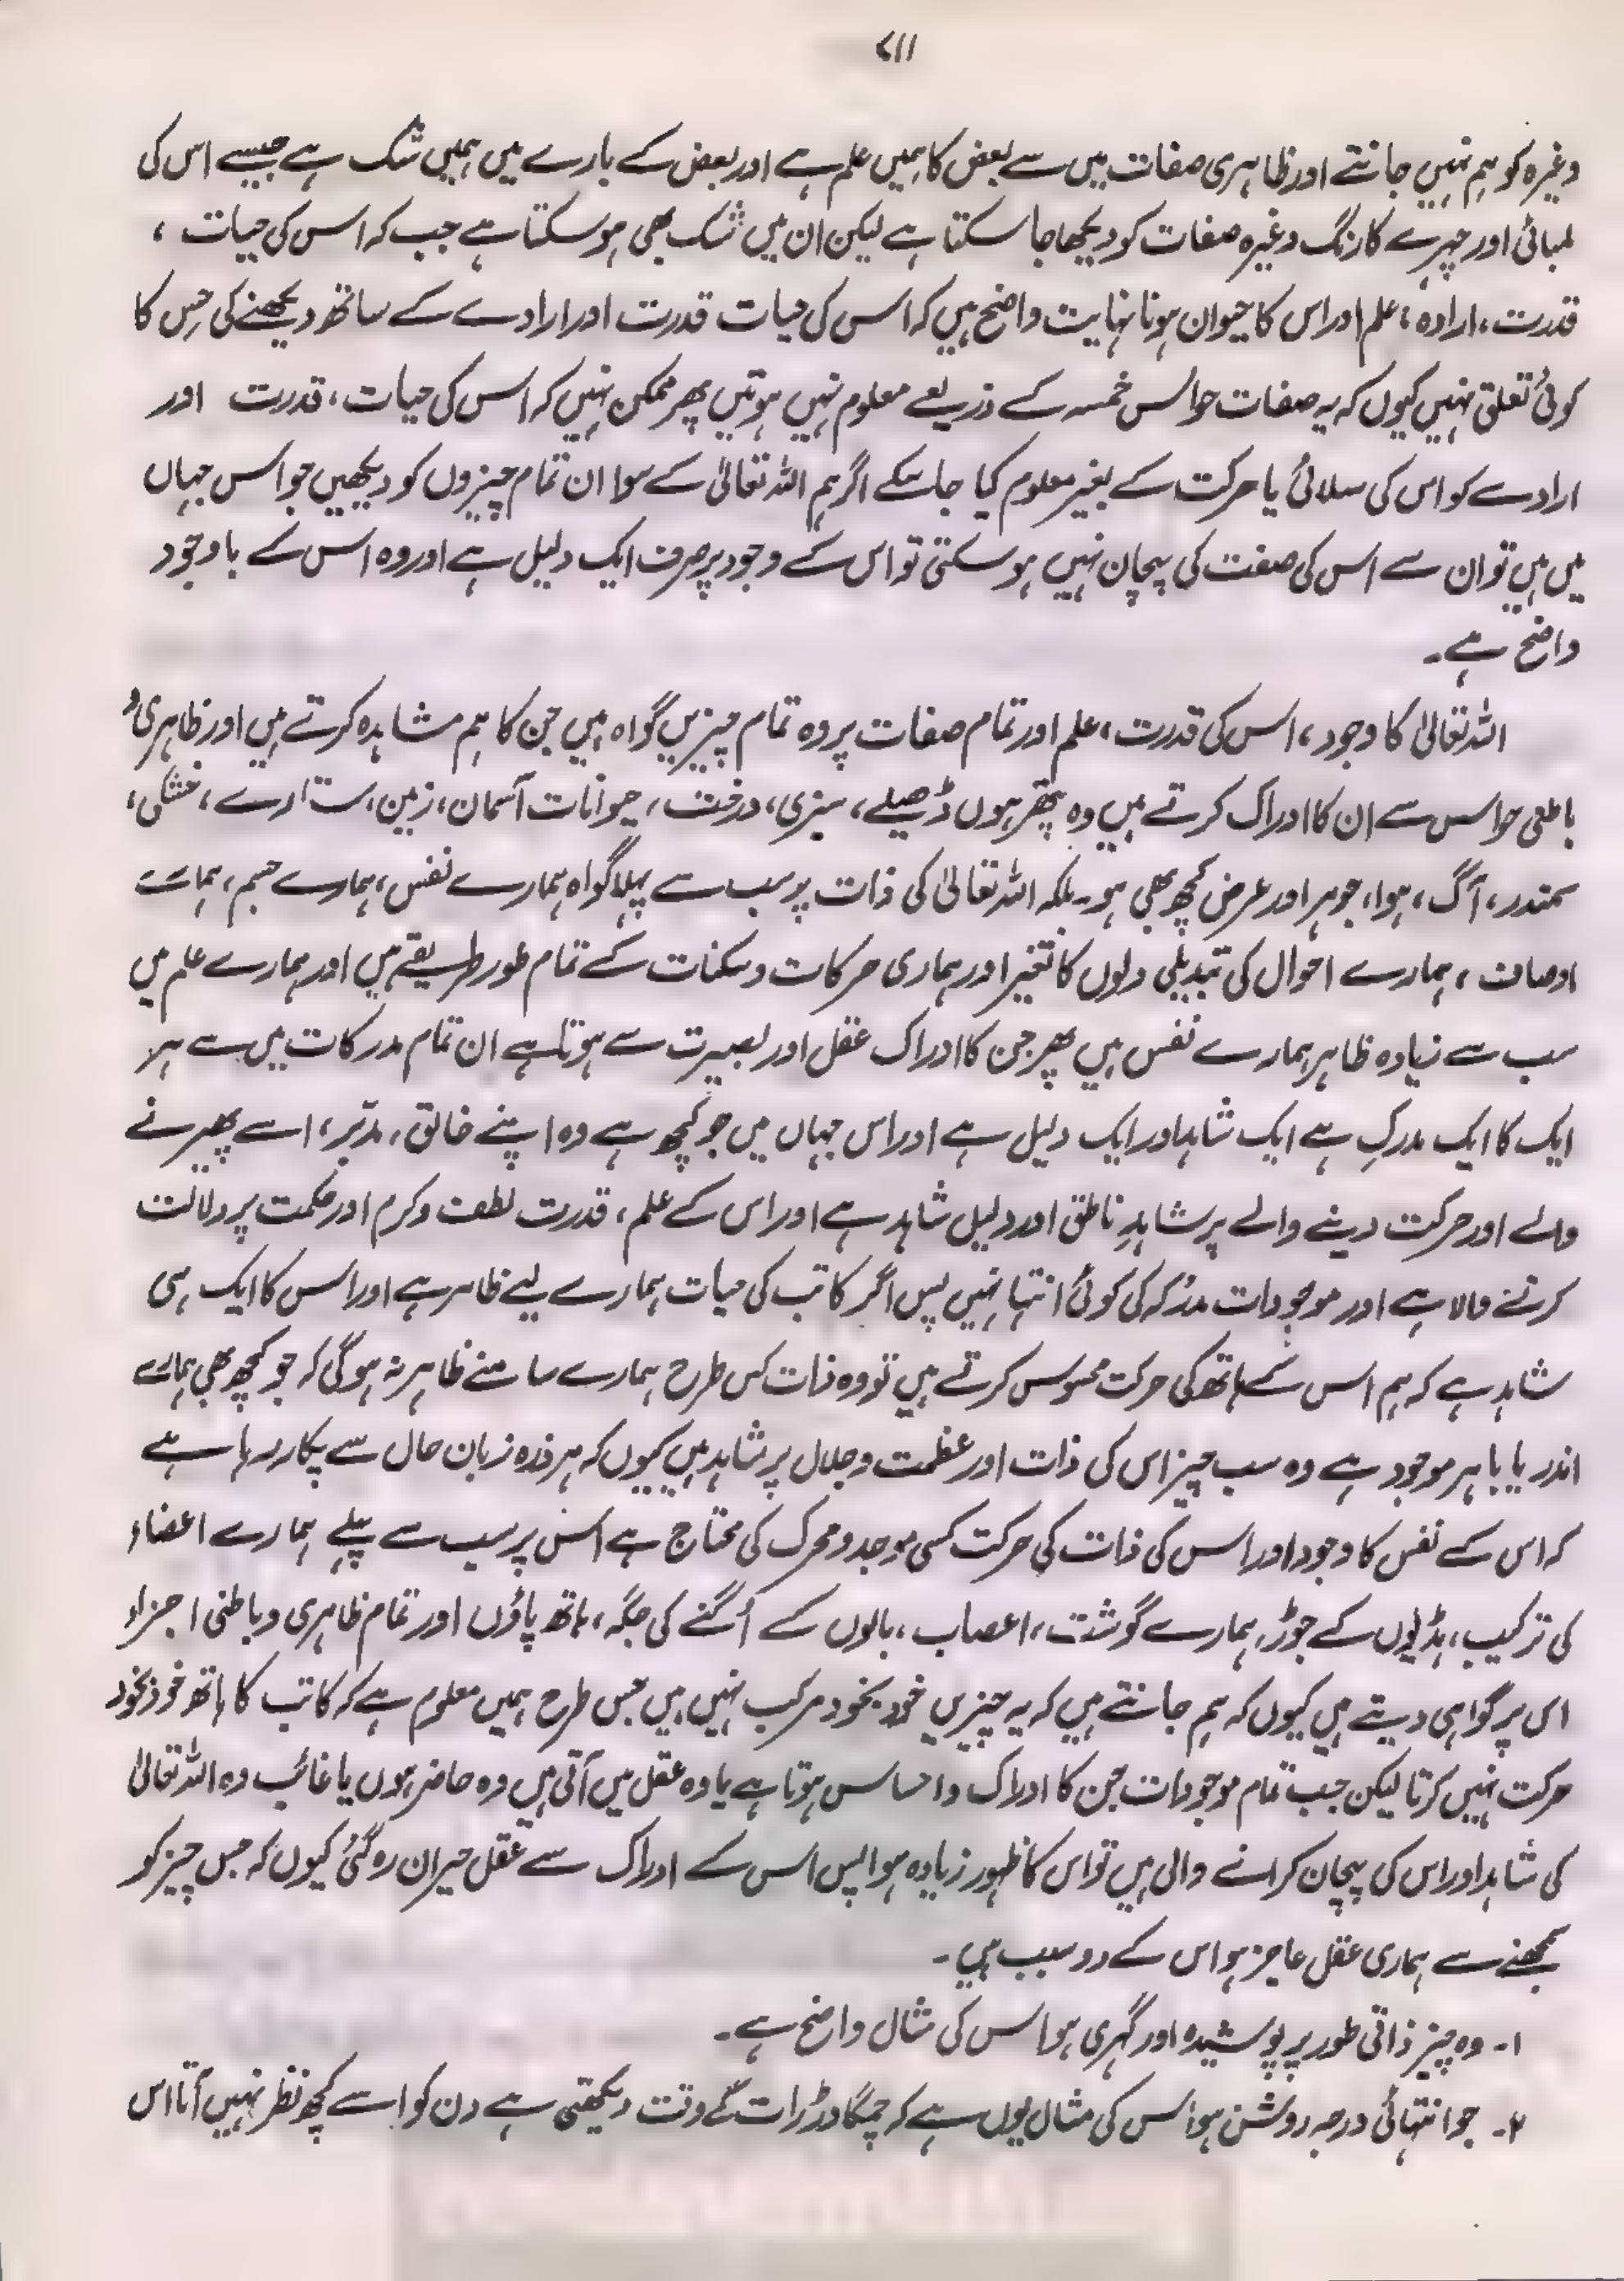 ۷۱۱
وغیرہ کو ہم نہیں جانتے اور ظاہری صفات میں سے بعض کا ہمیں علم ہے اور بعض کے بارے میں ہمیں شک ہے جیسے اس کی
لمبائی اور چہرے کا رنگ وغیرہ صفات کو دیکھا جا سکتا ہے لیکن ان میں شک بھی ہو سکتا ہے جب کہ اس کی حیات ،
قدرت، ارادہ ، علم اور اس کا حیوان ہونا نہایت واضح ہیں کہ اس کی حیات قدرت اور ارادے کے ساتھ دیکھنے کی حِس کا
کوئی تعلق نہیں کیوں کہ یہ صفات حواس خمسہ کے ذریعے معلوم نہیں ہوتیں پھر ممکن نہیں کہ اس کی حیات ، قدرت اور
ارادے کو اس کی سلائی یا حرکت کے بغیر معلوم کیا جا سکے اگر ہم اللہ تعالیٰ کے سوا ان تمام چیزوں کو دیکھیں جو اس جہاں
میں ہیں تو ان سے اس کی صفت کی پہچان نہیں ہو سکتی تو اس کے وجود پر صرف ایک دلیل ہے اور وہ اس کے باوجود
واضح ہے۔
اللہ تعالیٰ کا وجود ، اس کی قدرت ، علم اور تمام صفات پر وہ تمام چیزیں گواہ ہیں جن کا ہم مشاہدہ کرتے ہیں اور ظاہری و
باطنی حواس سے ان کا ادراک کرتے ہیں وہ پتھر ہوں ڈھیلے ، سبزی، درخت ، حیوانات آسمان، زمین، ستارے ، خشکی،
سمندر ، آگ ، ہوا، جوہر اور عرض کچھ بھی ہو۔ بلکہ اللہ تعالیٰ کی ذات پر سب سے پہلا گواہ ہمارے نفس ، ہمارے جسم ، ہمارے
اوصاف ، ہمارے احوال کی تبدیلی دلوں کا تغیر اور ہماری حرکات و سکنات کے تمام طور طریقے ہیں اور ہمارے علم میں
سب سے زیادہ ظاہر ہمارے نفس ہیں پھر جن کا ادراک عقل اور بصیرت سے ہوتا ہے ان تمام مدرکات میں سے ہر
ایک کا ایک مدرِک ہے ایک شاہد اور ایک دلیل ہے اور اس جہاں میں جو کچھ ہے وہ اپنے خالق ، مدبّر ، اسے پھیرنے
والے اور حرکت دینے والے پر شاہدِ ناطق اور دلیل شاہد ہے اور اس کے علم ، قدرت لطف و کرم اور حکمت پر دلالت
کرنے والا ہے اور موجودات مدرَکہ کی کوئی انتہا نہیں پس اگر کاتب کی حیات ہمارے لیے ظاہر ہے اور اس کا ایک ہی
شاہد ہے کہ ہم اس کے ہاتھ کی حرکت محسوس کرتے ہیں تو وہ ذات کس طرح ہمارے سامنے ظاہر نہ ہوگی کہ جو کچھ بھی ہمارے
اندر یا باہر موجود ہے وہ سب چیز اس کی ذات اور عظمت و جلال پر شاہد ہیں کیوں کہ ہر ذرہ زبان حال سے پکار رہا ہے
کہ اس کے نفس کا وجود اور اس کی ذات کی حرکت کسی موجد و محرک کی محتاج ہے اس پر سب سے پہلے ہمارے اعضاء
کی ترکیب، ہڈیوں کے جوڑ، ہمارے گوشت، اعصاب ، بالوں کے اُگنے کی جگہ ، ہاتھ پاؤں اور تمام ظاہری و باطنی اجزاء
اس پر گواہی دیتے ہیں کیوں کہ ہم جانتے ہیں کہ یہ چیزیں خود بخود مرکب نہیں ہیں جس طرح ہمیں معلوم ہے کہ کاتب کا ہاتھ خود بخود
حرکت نہیں کرتا لیکن جب تمام موجودات جن کا ادراک و احساس ہوتا ہے یا وہ عقل میں آتی ہیں وہ حاضر ہوں یا غائب وہ اللہ تعالیٰ
کی شاہد اور اس کی پہچان کرانے والی ہیں تو اس کا ظہور زیادہ ہوا پس اس کے ادراک سے عقل حیران رہ گئی کیوں کہ جس چیز کو
سمجھنے سے ہماری عقل عاجز ہو اس کے دو سبب ہیں ۔
۱۔ وہ چیز ذاتی طور پر پوشیدہ اور گہری ہو اس کی مثال واضح ہے۔
۲۔ جو انتہائی درجہ روشن ہو اس کی مثال یوں ہے کہ چمگادڑ رات کے وقت دیکھتی ہے دن کو اسے کچھ نظر نہیں آتا اس